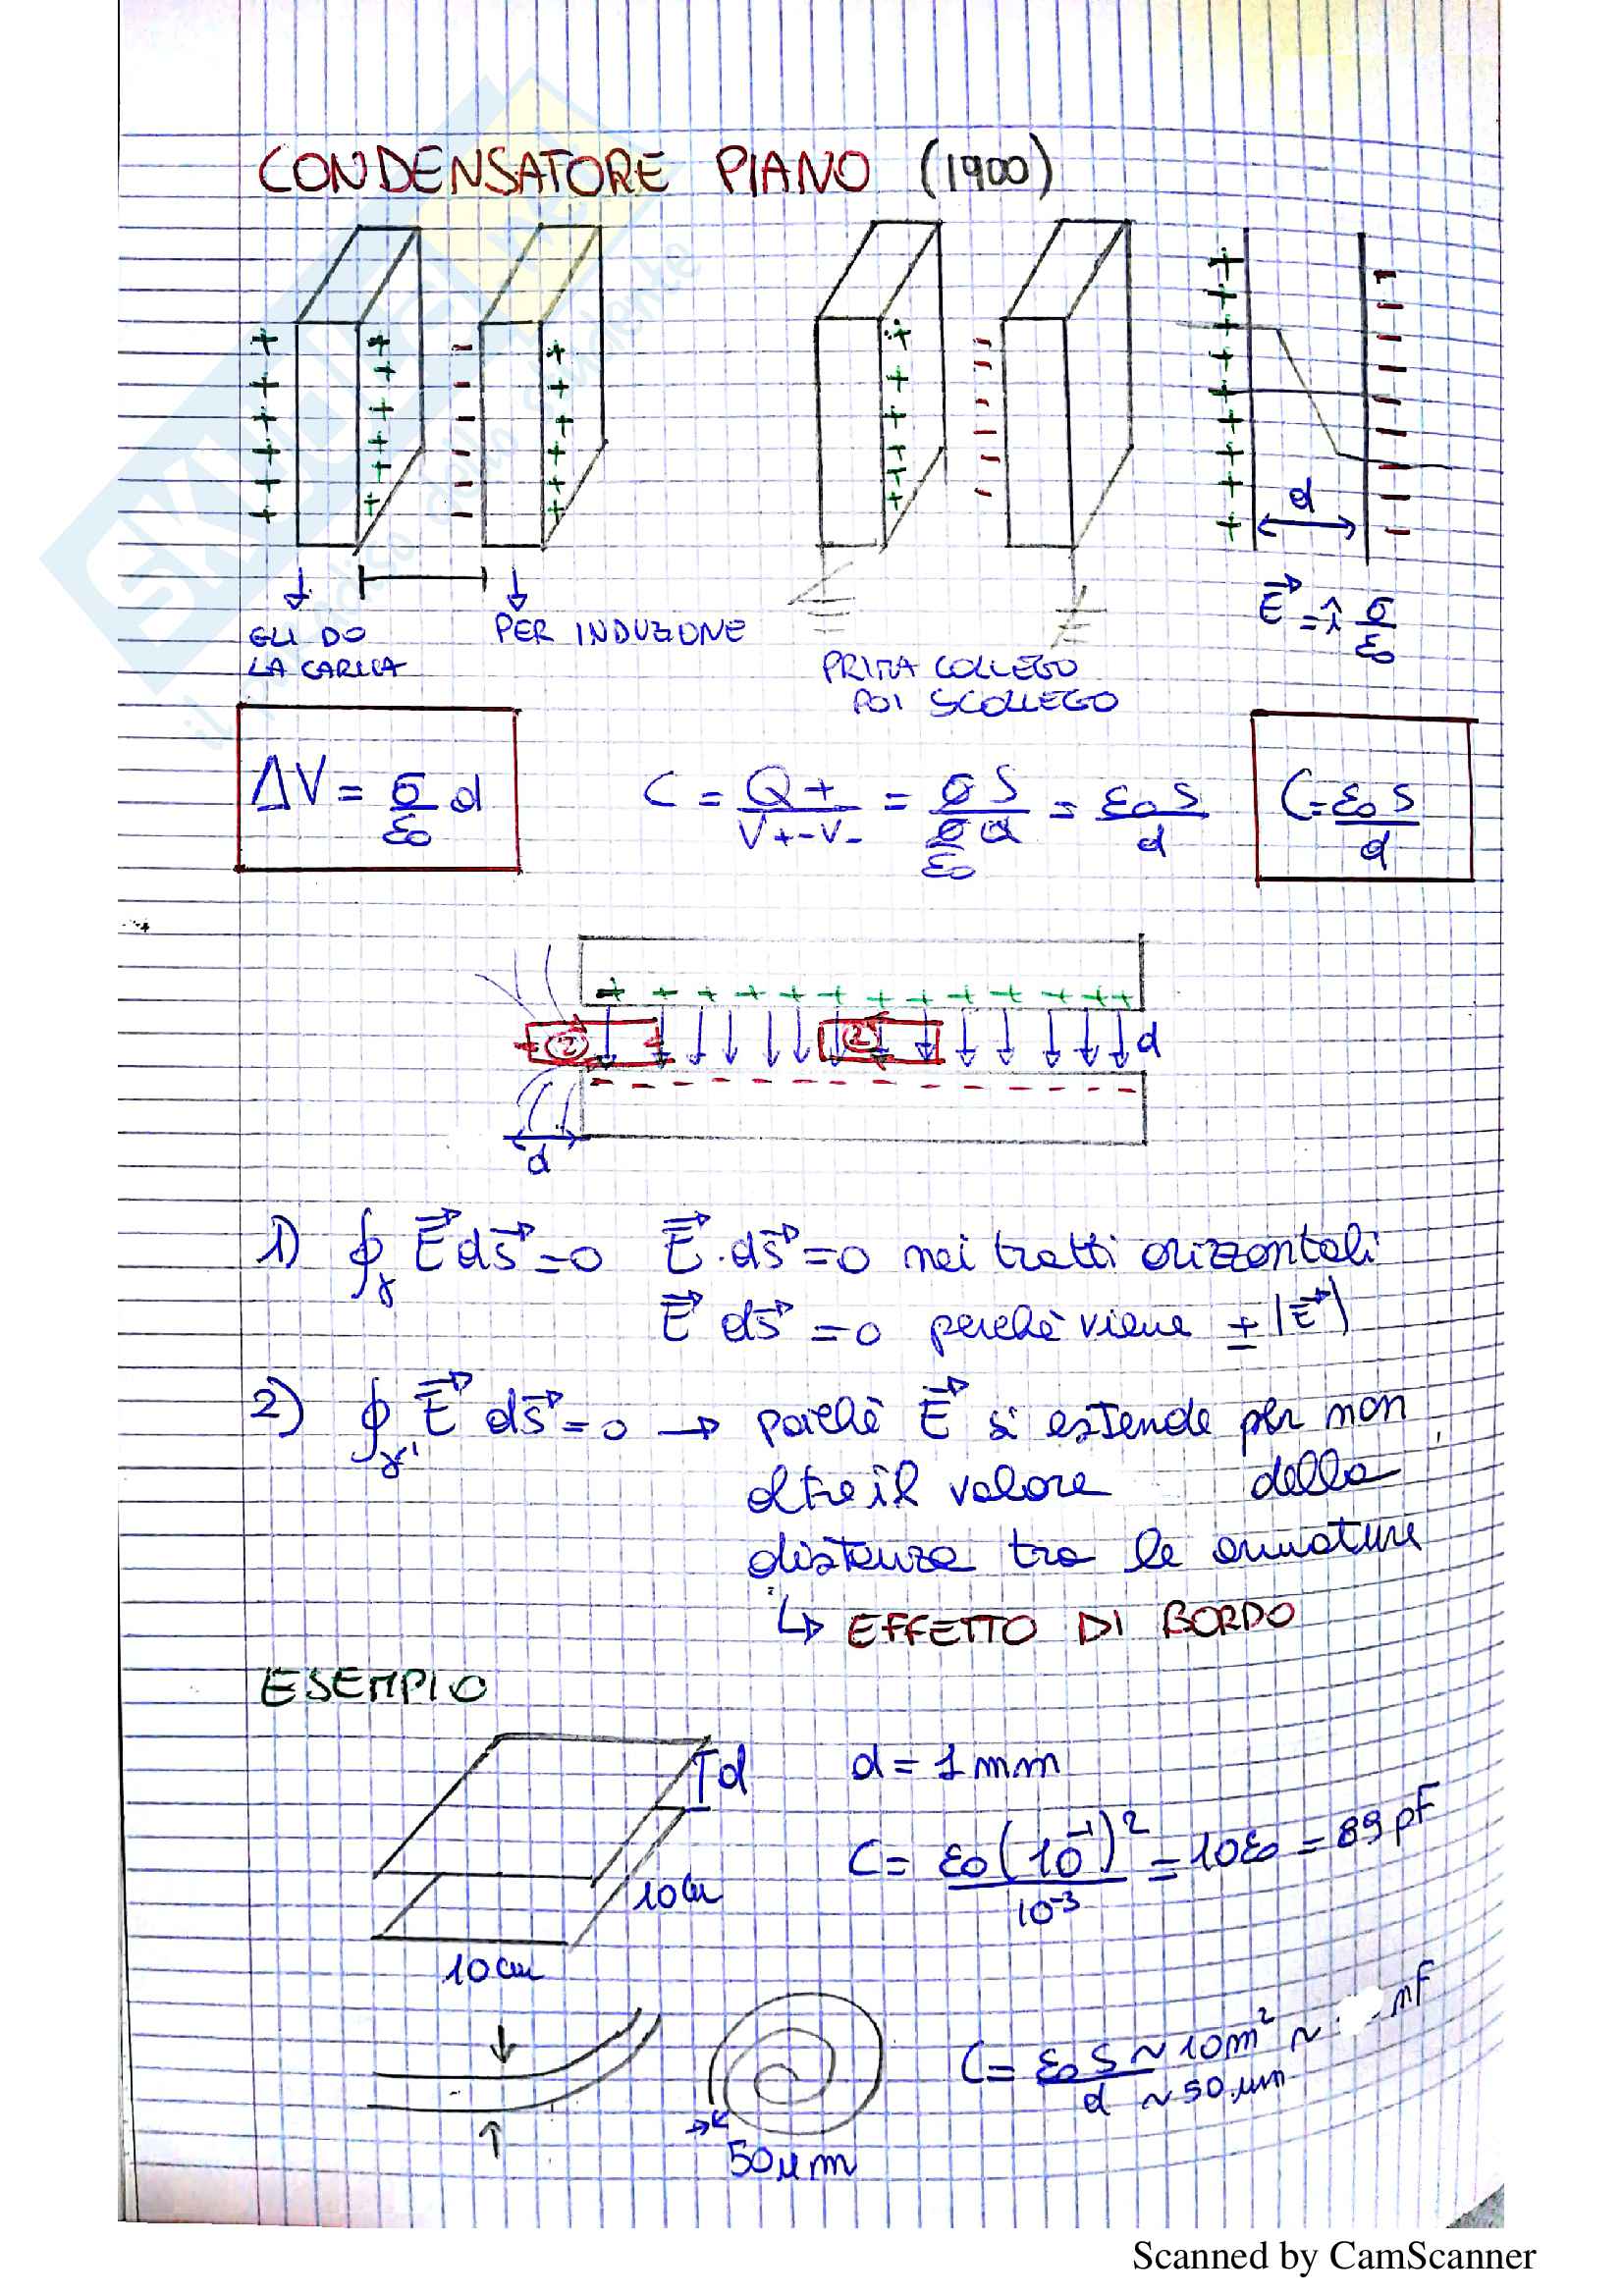 CONDENSATORE PIANO (1900)
d
GLI DO
LA CARICA
PER INDUZIONE
PRIMA COLLEGO
POI SCOLLEGO
E⃗ = î σ/ε₀
ΔV = σ/ε₀ d
C = Q+/(V+ - V-) = σS/(σ/ε₀ d) = ε₀S/d
C = ε₀S/d
②
②
d
d
1) ∮γ E⃗ ds⃗ = 0 E⃗ · ds⃗ = 0 nei tratti orizzontali
E⃗ ds⃗ = 0 perchè viene ± |E⃗|
2) ∮γ' E⃗ ds⃗ = 0 → poichè E⃗ si estende per non
oltre il valore della
distanza tra le armature
↳ EFFETTO DI BORDO
ESEMPIO
d
d = 1 mm
C = ε₀(10⁻¹)²/10⁻³ = 10ε₀ = 89 pF
10 cm
10 cm
C = ε₀ S ~ 10 m² / d ~ 50 μm ~ nF
50 μm
SKUOLA
Scanned by CamScanner